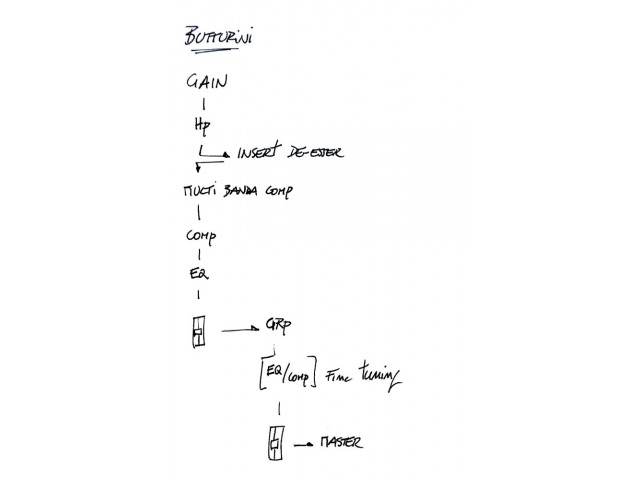 BUTTURINI
GAIN
Hp
INSERT DE-ESSER
MULTI BANDA COMP
COMP
EQ
GRP
[EQ/COMP] Fine tuning
MASTER